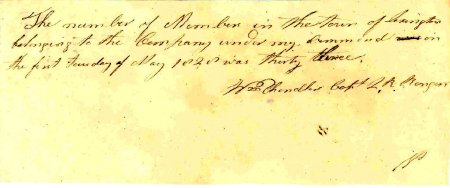 The number of Member in the town of Lexington
belonging to the Company under my Command in
the first Tuesday of May 1828 was thirty three.
Wm Chandler Capt L. R. Rangers